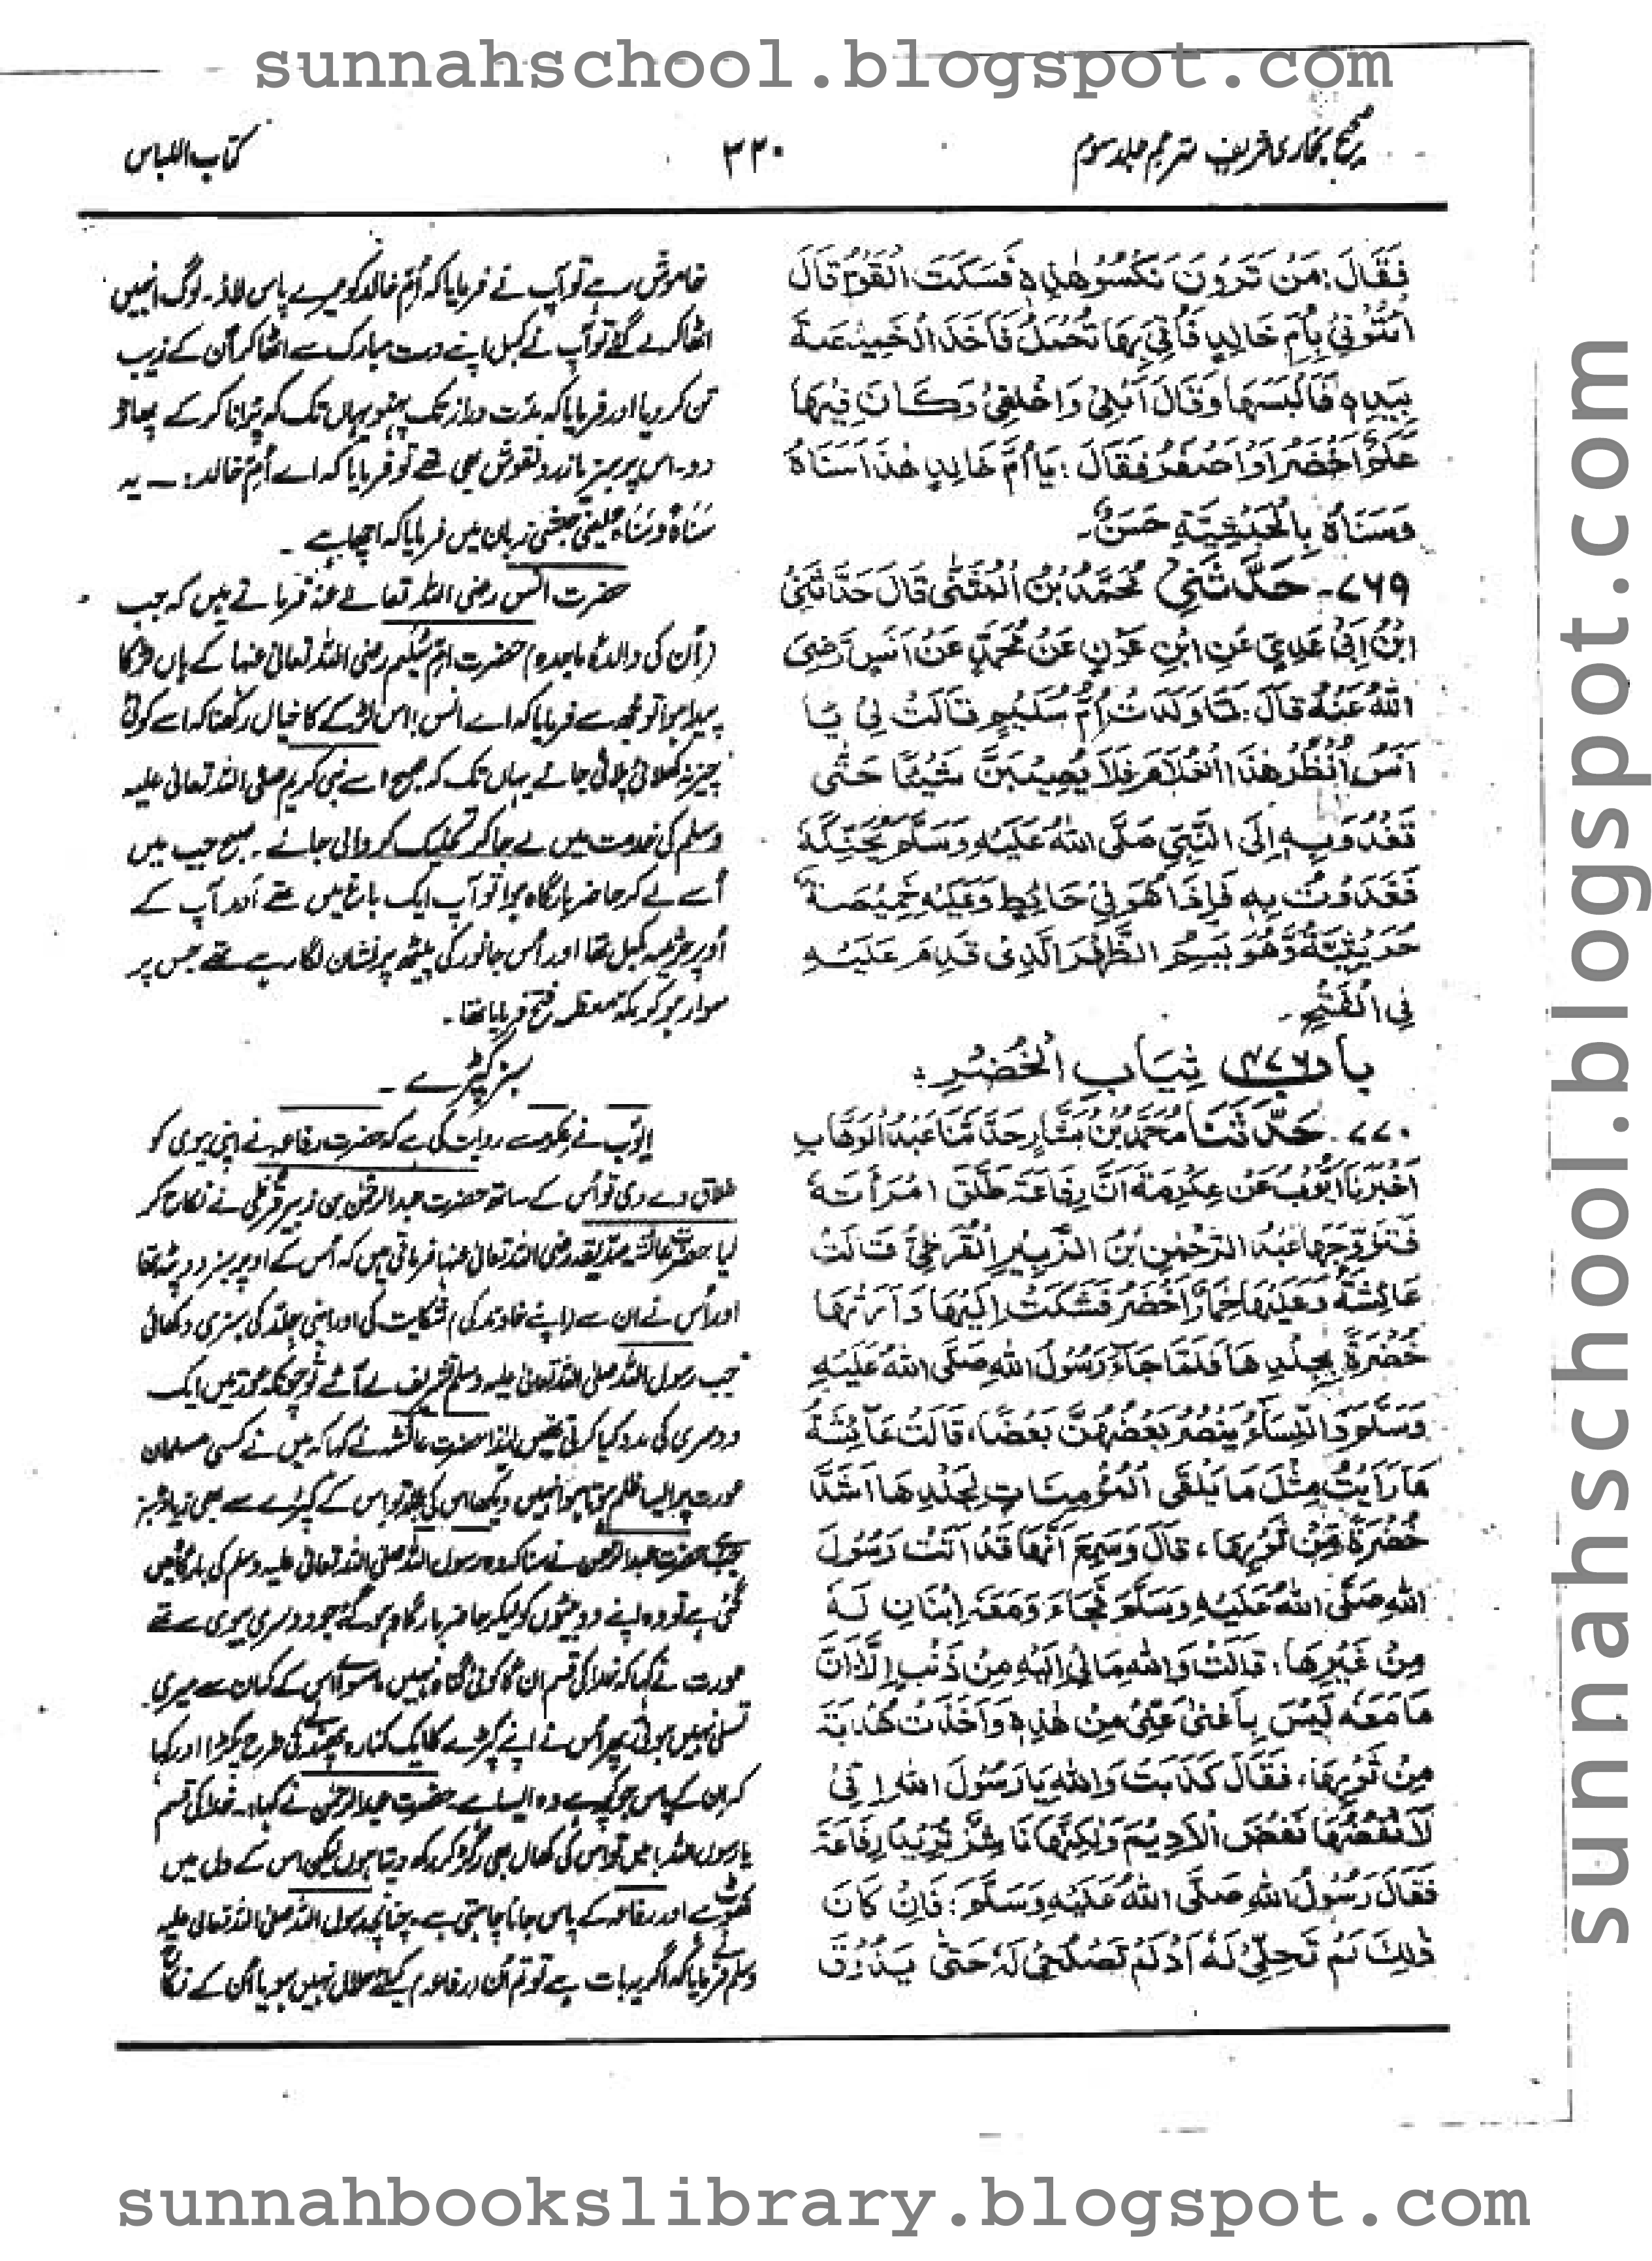 sunnahschool.blogspot.com
صحیح بخاری شریف مترجم جلد سوم
۳۳۰
کتاب اللباس
فَقَالَ: مَنْ تَرَوْنَ نَكْسُوْ هٰذِهٖ فَسَكَتَ الْقَوْمُ قَالَ
ائْتُوْنِيْ بِأُمِّ خَالِدٍ فَأُتِيَ بِهَا تُحْمَلُ فَاَخَذَ الْخَمِيْصَةَ
بِيَدِهٖ فَاَلْبَسَهَا وَقَالَ اَبْلِيْ وَاَخْلِقِيْ وَكَانَ فِيْهَا
عَلَمٌ اَخْضَرُ اَوْ اَصْفَرُ فَقَالَ: يَا اُمَّ خَالِدٍ هٰذَا سَنَاهُ
وَسَنَاهُ بِالْحَبَشِيَّةِ حَسَنٌ۔
۷۶۹۔ حَدَّثَنِيْ مُحَمَّدُ بْنُ الْمُثَنّٰى قَالَ حَدَّثَنِيْ
ابْنُ اَبِيْ عَدِيٍّ عَنِ ابْنِ عَوْنٍ عَنْ مُحَمَّدٍ عَنْ اَنَسٍ رَضِيَ
اللهُ عَنْهُ قَالَ: لَمَّا وَلَدَتْ اُمُّ سُلَيْمٍ قَالَتْ لِيْ يَا
اَنَسُ اُنْظُرْ هٰذَا الْغُلَامَ فَلَا يُصِيْبَنَّ شَيْئًا حَتّٰى
تَغْدُوَ بِهٖ اِلَى النَّبِيِّ صَلَّى اللهُ عَلَيْهِ وَسَلَّمَ يُحَنِّكُهٗ
فَغَدَوْتُ بِهٖ فَاِذَا هُوَ فِيْ حَائِطٍ وَعَلَيْهِ خَمِيْصَةٌ
حُرَيْثِيَّةٌ وَّهُوَ يَسِمُ الظَّهْرَ الَّذِيْ قَدِمَ عَلَيْهِ
فِي الْفَتْحِ۔
باب ثِيَابِ الْخُضْرِ:
۷۷۰۔ حَدَّثَنَا مُحَمَّدُ بْنُ بَشَّارٍ حَدَّثَنَا عَبْدُ الْوَهَّابِ
اَخْبَرَنَا اَيُّوْبُ عَنْ عِكْرِمَةَ اَنَّ رِفَاعَةَ طَلَّقَ امْرَأَتَهٗ
فَتَزَوَّجَهَا عَبْدُ الرَّحْمٰنِ بْنُ الزَّبِيْرِ الْقُرَظِيُّ قَالَتْ
عَائِشَةُ وَعَلَيْهَا خِمَارٌ اَخْضَرُ فَشَكَتْ اِلَيْهَا وَاَرَتْهَا
خُضْرَةً بِجِلْدِهَا فَلَمَّا جَاءَ رَسُوْلُ اللهِ صَلَّى اللهُ عَلَيْهِ
وَسَلَّمَ وَالنِّسَاءُ يَنْصُرُ بَعْضُهُنَّ بَعْضًا، قَالَتْ عَائِشَةُ
مَا رَاَيْتُ مِثْلَ مَا يَلْقَى الْمُؤْمِنَاتِ لَجِلْدُهَا اَشَدُّ
خُضْرَةً مِّنْ ثَوْبِهَا، قَالَ وَسَمِعَ اَنَّهَا قَدْ اَتَتْ رَسُوْلَ
اللهِ صَلَّى اللهُ عَلَيْهِ وَسَلَّمَ فَجَاءَ وَمَعَهُ ابْنَانِ لَهٗ
مِنْ غَيْرِهَا، قَالَتْ وَاللهِ مَالِيْ اِلَيْهِ مِنْ ذَنْبٍ اِلَّا اَنَّ
مَا مَعَهٗ لَيْسَ بِاَغْنٰى عَنِّيْ مِنْ هٰذِهٖ وَاَخَذَتْ هُدْبَةً
مِنْ ثَوْبِهَا، فَقَالَ كَذَبَتْ وَاللهِ يَا رَسُوْلَ اللهِ اِنِّيْ
لَاَنْفُضُهَا نَفْضَ الْاَدِيْمِ وَلٰكِنَّهَا نَاشِزٌ تُرِيْدُ رِفَاعَةَ
فَقَالَ رَسُوْلُ اللهِ صَلَّى اللهُ عَلَيْهِ وَسَلَّمَ: فَاِنْ كَانَ
ذٰلِكَ لَمْ تَحِلِّيْ لَهٗ اَوْ لَمْ تَصْلُحِيْ لَهٗ حَتّٰى يَذُوْقَ
خاموش رہے تو آپ نے فرمایا کہ اُمِّ خالد کو میرے پاس لاؤ۔ لوگ انہیں
اٹھا کر لے گئے تو آپ نے کمبل اپنے دست مبارک سے اٹھا کر اُن کے زیب
تن کر دیا اور فرمایا کہ مدت دراز تک پہنو یہاں تک کہ پرانا کر کے پھاڑ
دو۔ اس پر سبز یا زرد نقوش بھی تھے تو فرمایا کہ اے اُمِّ خالد:۔ یہ
سَنَاہْ وَسَنَاہْ حبشی زبان میں فرمایا کہ اچھا ہے۔
حضرت انس رضی اللہ تعالےٰ عنہ فرماتے ہیں کہ جب
(اُن کی والدۂ ماجدہ) حضرت اُمِّ سُلیم رضی اللہ تعالیٰ عنہا کے ہاں لڑکا
پیدا ہوا تو مجھ سے فرمایا کہ اے انس! اس لڑکے کا خیال رکھنا کہ اسے کوئی
چیز نہ کھلائی پلائی جائے یہاں تک کہ صبح اسے نبی کریم صلی اللہ تعالیٰ علیہ
وسلم کی خدمت میں لے جا کر تحنیک کروالی جائے۔ صبح جب میں
اُسے لے کر حاضر بارگاہ ہوا تو آپ ایک باغ میں تھے اور آپ کے
اُوپر حریثیہ کمبل تھا اور اُس جانور کی پیٹھ پر نشان لگا رہے تھے جس پر
سوار ہو کر مکہ معظمہ فتح فرمایا تھا۔
سبز کپڑے۔
ایوب نے عکرمہ سے روایت کی ہے کہ حضرت رفاعہ نے اپنی بیوی کو
طلاق دے دی تو اُس کے ساتھ حضرت عبدالرحمٰن بن زبیر قرظی نے نکاح کر
لیا حضرت عائشہ صدیقہ رضی اللہ تعالیٰ عنہا فرماتی ہیں کہ اُس کے اوپر سبز دوپٹہ تھا
اور اُس نے ان سے (اپنے خاوند کی) شکایت کی اور اپنی جلد کی سبزی دکھائی
جب رسول اللہ صلی اللہ تعالیٰ علیہ وسلم تشریف لے آئے تو چونکہ عورتیں ایک
دوسری کی مدد کیا کرتی تھیں لہٰذا حضرت عائشہ نے کہا کہ میں نے کسی مسلمان
عورت پر ایسا ظلم ہوتا ہوا نہیں دیکھا اس کی جلد تو اس کے کپڑے سے بھی زیادہ سبز
ہے جب حضرت عبدالرحمٰن نے سنا کہ وہ رسول اللہ صلی اللہ تعالیٰ علیہ وسلم کی بارگاہ میں
گئی ہے تو وہ اپنے دو بیٹوں کو لیکر حاضر بارگاہ ہو گئے جو دوسری بیوی سے تھے
عورت نے کہا کہ خدا کی قسم ان کا کوئی گناہ نہیں ماسوا اس کے کہ ان سے میری
تسلی نہیں ہوتی پھر اُس نے اپنے کپڑے کا ایک کنارہ پھندنے کی طرح پکڑا اور کہا
کہ ان کے پاس جو کچھ ہے وہ ایسا ہے۔ حضرت عبدالرحمٰن نے کہا:۔ خدا کی قسم
یا رسول اللہ! میں تو اس کی کھال بھی رگڑ کر رکھ دیتا ہوں لیکن اس کے دل میں
کھوٹ ہے اور رفاعہ کے پاس جانا چاہتی ہے۔ چنانچہ رسول اللہ صلی اللہ تعالیٰ علیہ
وسلم نے فرمایا کہ اگر یہ بات ہے تو تم اُن (رفاعہ) کیلئے حلال نہیں ہو یا اُن کے نکاح
sunnahschool.blogspot.com
sunnahbookslibrary.blogspot.com